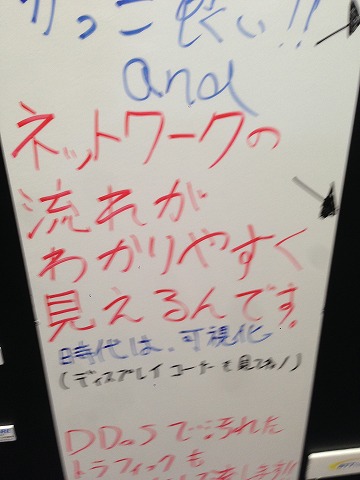 かっこいい!!
and
ネットワークの
流れが
わかりやすく
見えるんです。
時代は、可視化
(ディスプレイコーナーも見てね!)
DDoSで汚れた
トラフィックも
します!!